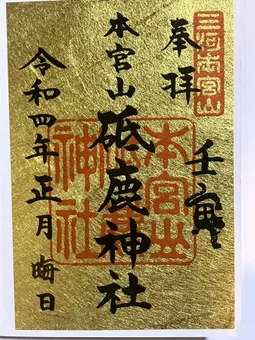 奉拝
三河本宮山
壬寅
本宮山
砥鹿神社
本宮山
神社
令和四年正月晦日